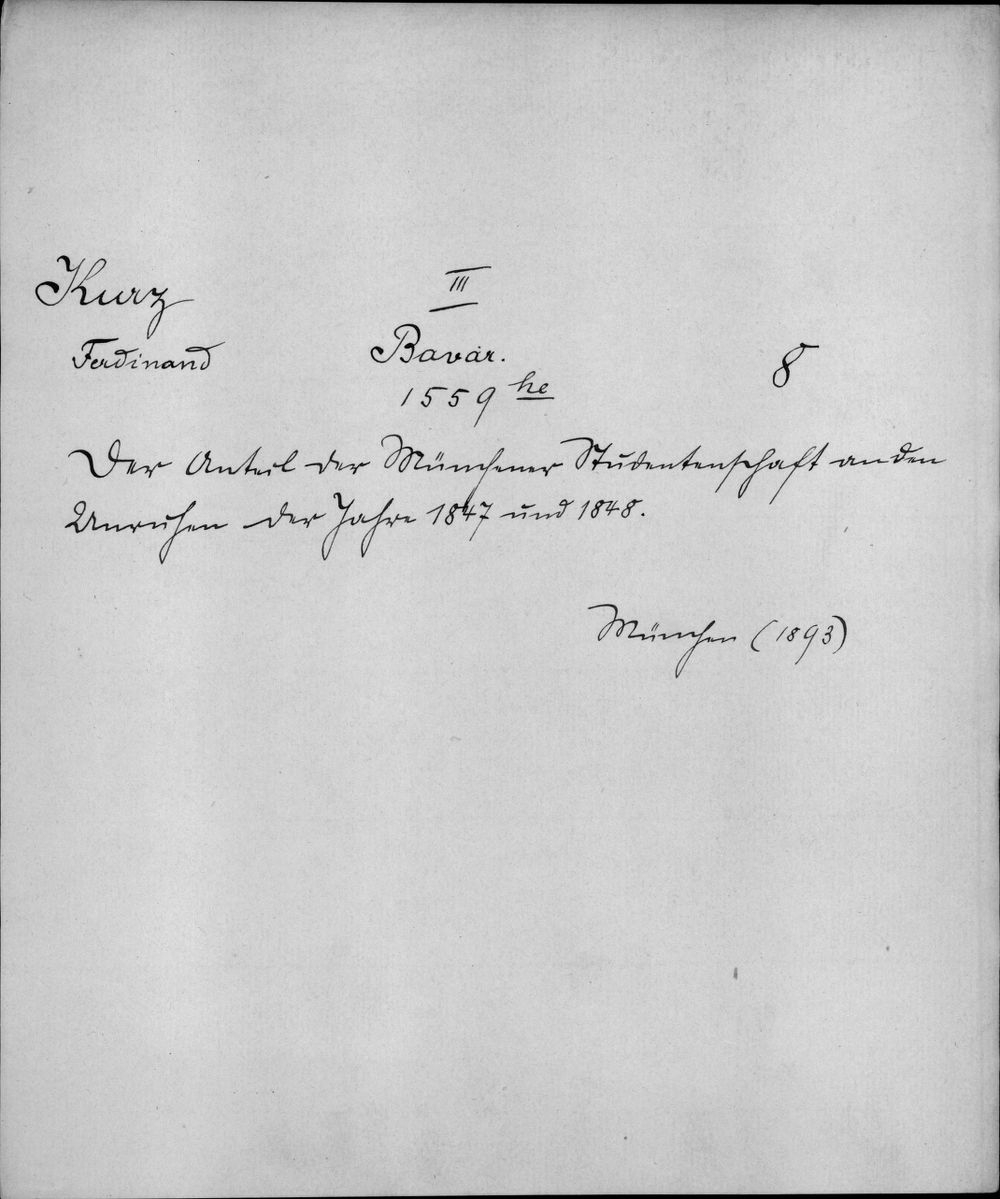 Kurz
III
Ferdinand
Bavar.
8
1559 he
Der Anteil der Münchener Studentenschaft an den
Unruhen der Jahre 1847 und 1848.
München (1893)